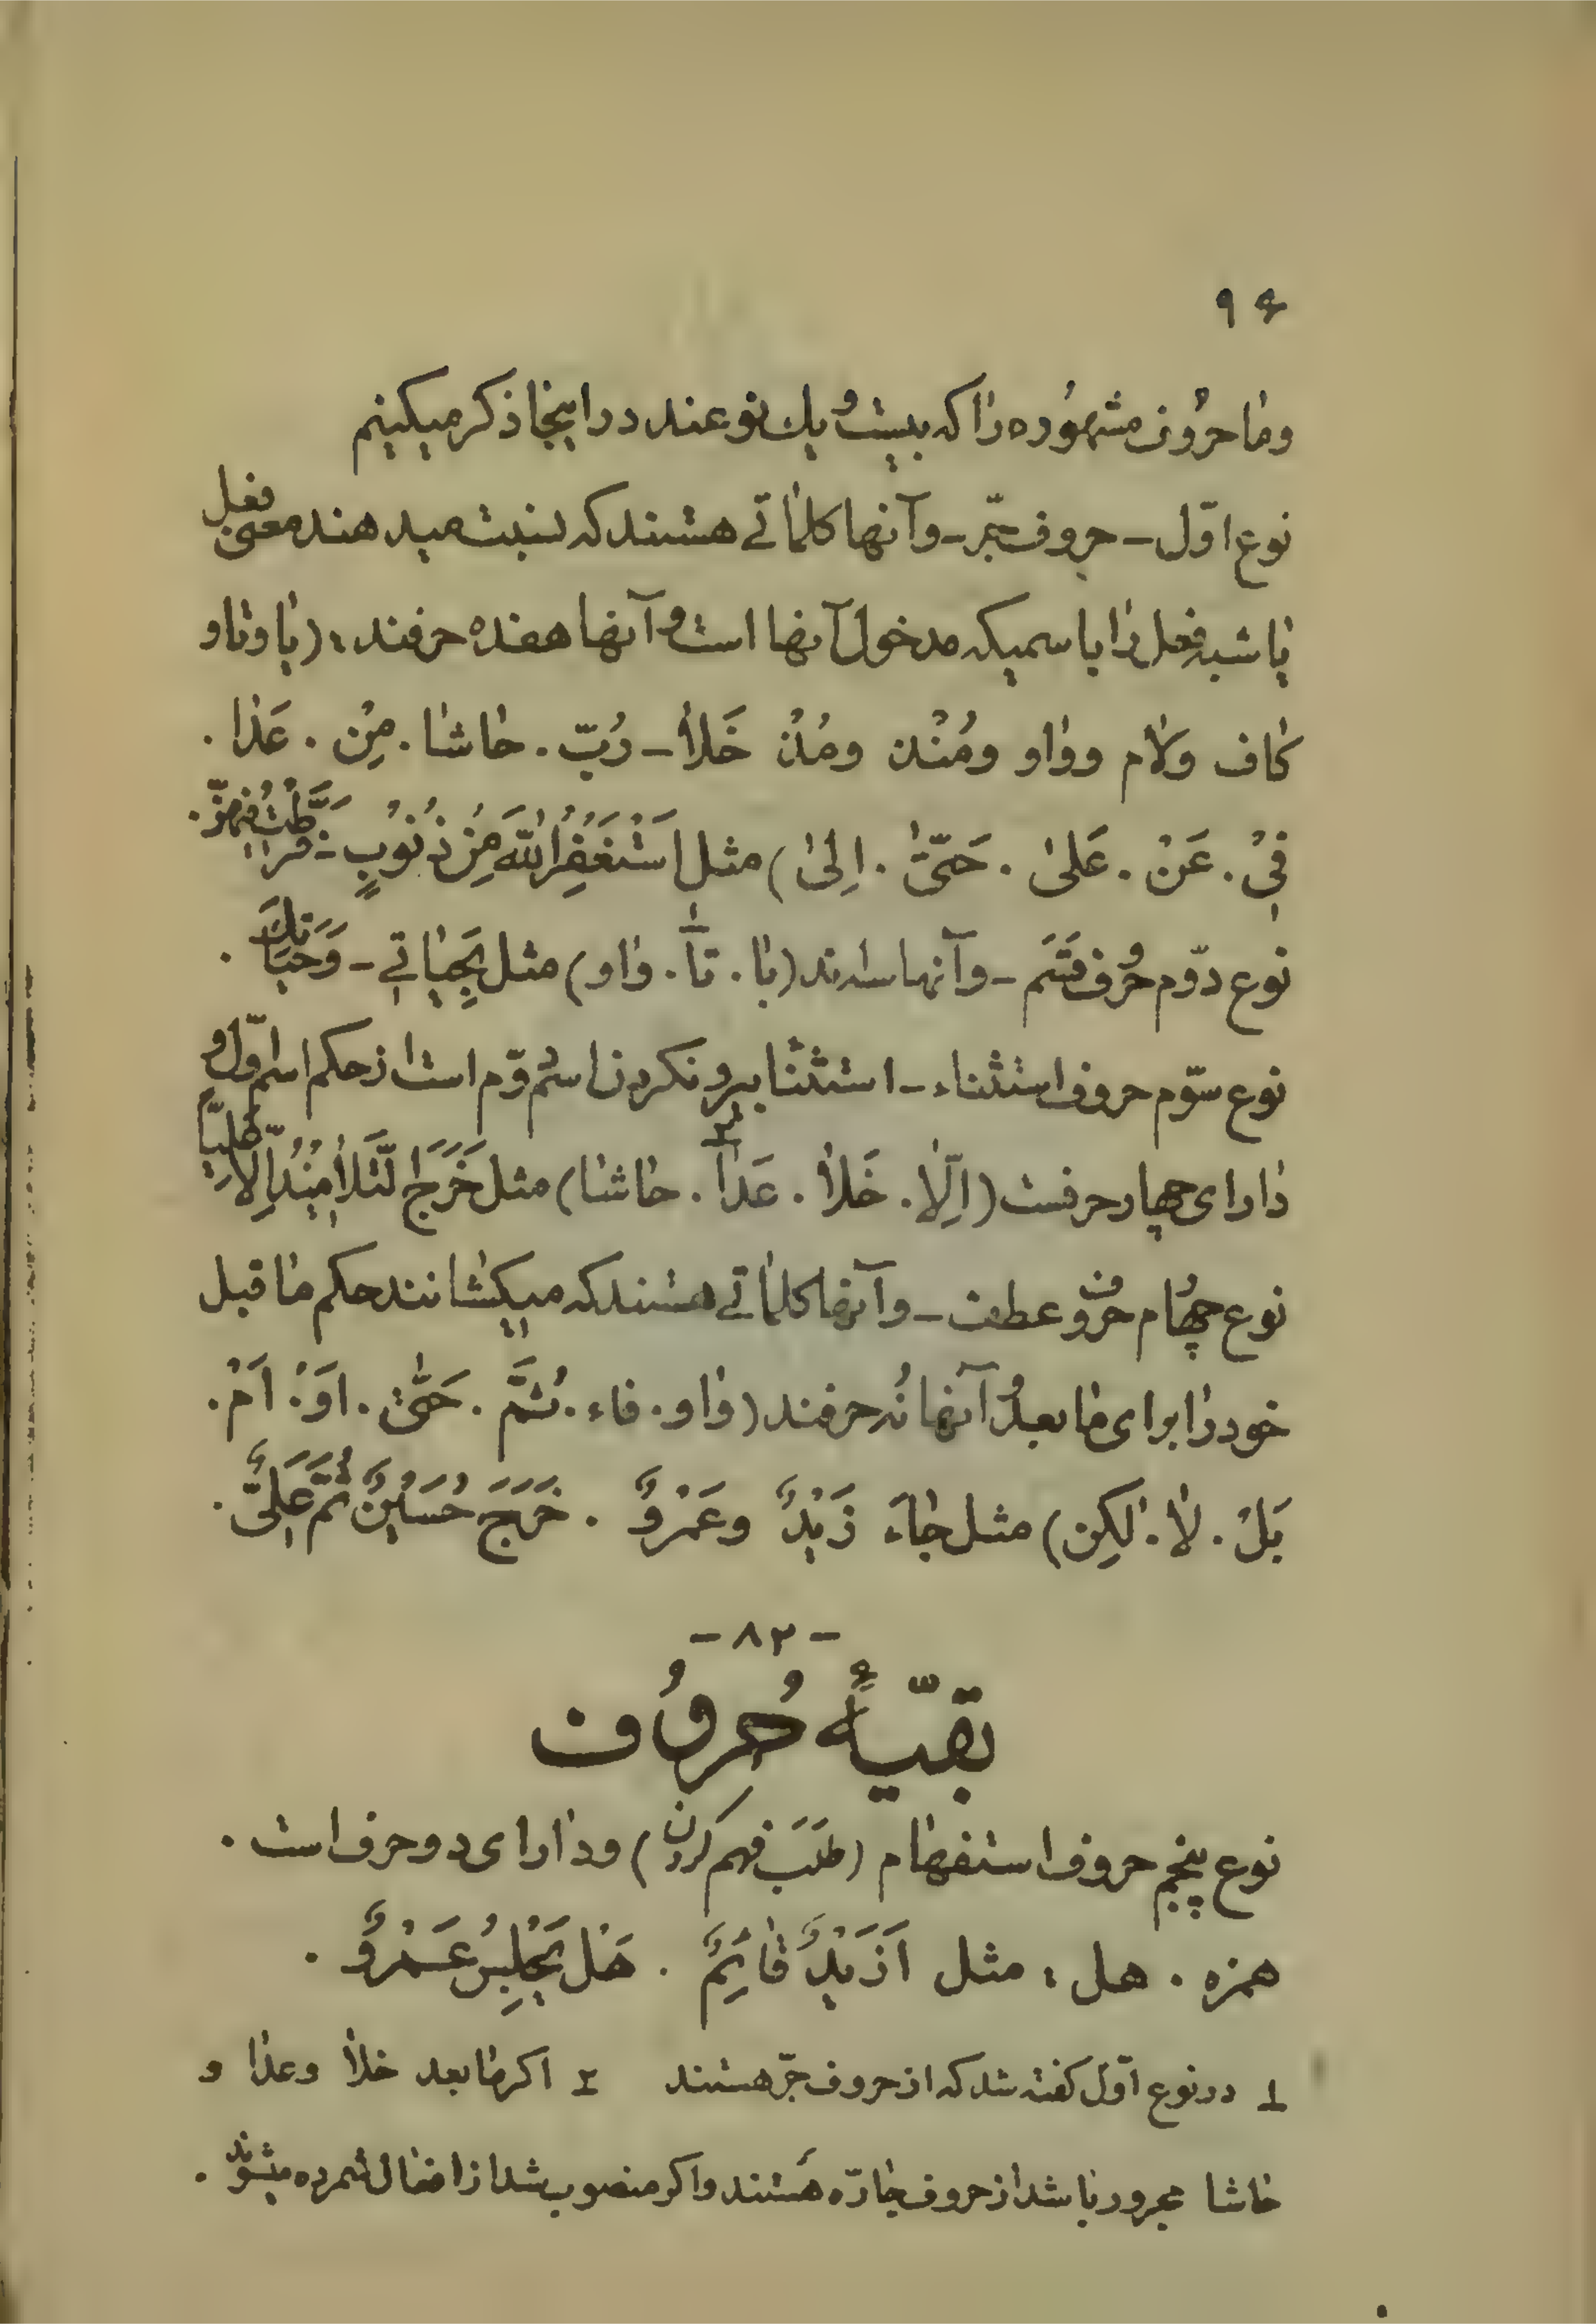 ۹۶
وما حروف مشهوره را که بیست و یك نوعند در اینجا ذکر میکینم
نوع اوّل ـ حروف جرّ ـ وآنها کلماتے هستند که نسبت میدهند معنی فعل
یا شبه فعل را باسمیکه مدخول آنها است و آنها هفده حرفند : (با وتا و
کاف ولام وواو ومُنْذ ومُذْ خَلا ـ رُبّ . حاشا . مِنْ . عَدا .
فِیْ . عَنْ . عَلیٰ . حَتّیٰ . اِلیٰ) مثل اَسْتَغْفِرُاللّٰهَ مِنْ ذُنُوبٍ ـ
نوع دوّم حُرُوف قَسَم ـ وآنها سه‌اند (با . تا۱ . واو) مثل بِحَیاتے ـ وَحَیاتِكَ .
نوع سوّم حروف استثناء ـ استثنا بیرونکردن اسم دوّم است از حکم اسم اوّل و
دارای چهار حرفست (اِلّا . خَلا . عَدا۲ . حاشا) مثل خَرَجَ التَّلامیذُ اِلّا
نوع چهارم حروف عطف ـ وآنها کلماتے هستند که میکشانند حکم ما قبل
خود را برای ما بعد و آنها نُه حرفند (واو . فاء . ثُمَّ . حَتّیٰ . اَوْ . اَمْ .
بَلْ . لا . لٰکِن) مثل جاءَ زَیْدٌ وعَمْرٌو . خَرَجَ حُسَیْنٌ ثُمَّ عَلِیٌّ .
- ۸۲ -
بقیّهٔ حُروُف
نوع پنجم حروف استفهام (طَلَب فهم کردن) ودارای دو حرف است .
همزه . هل : مثل اَزَیْدٌ قائِمٌ . هَلْ یَجْلِسُ عَمْرٌو .
۱ در نوع اوّل کفته شد که از حروف جرّ هستند ۲ اکر ما بعد خلا وعدا و
حاشا مجرور باشد از حروف جارّه هستند واکر منصوب شد از افعال شمرده میشوند .